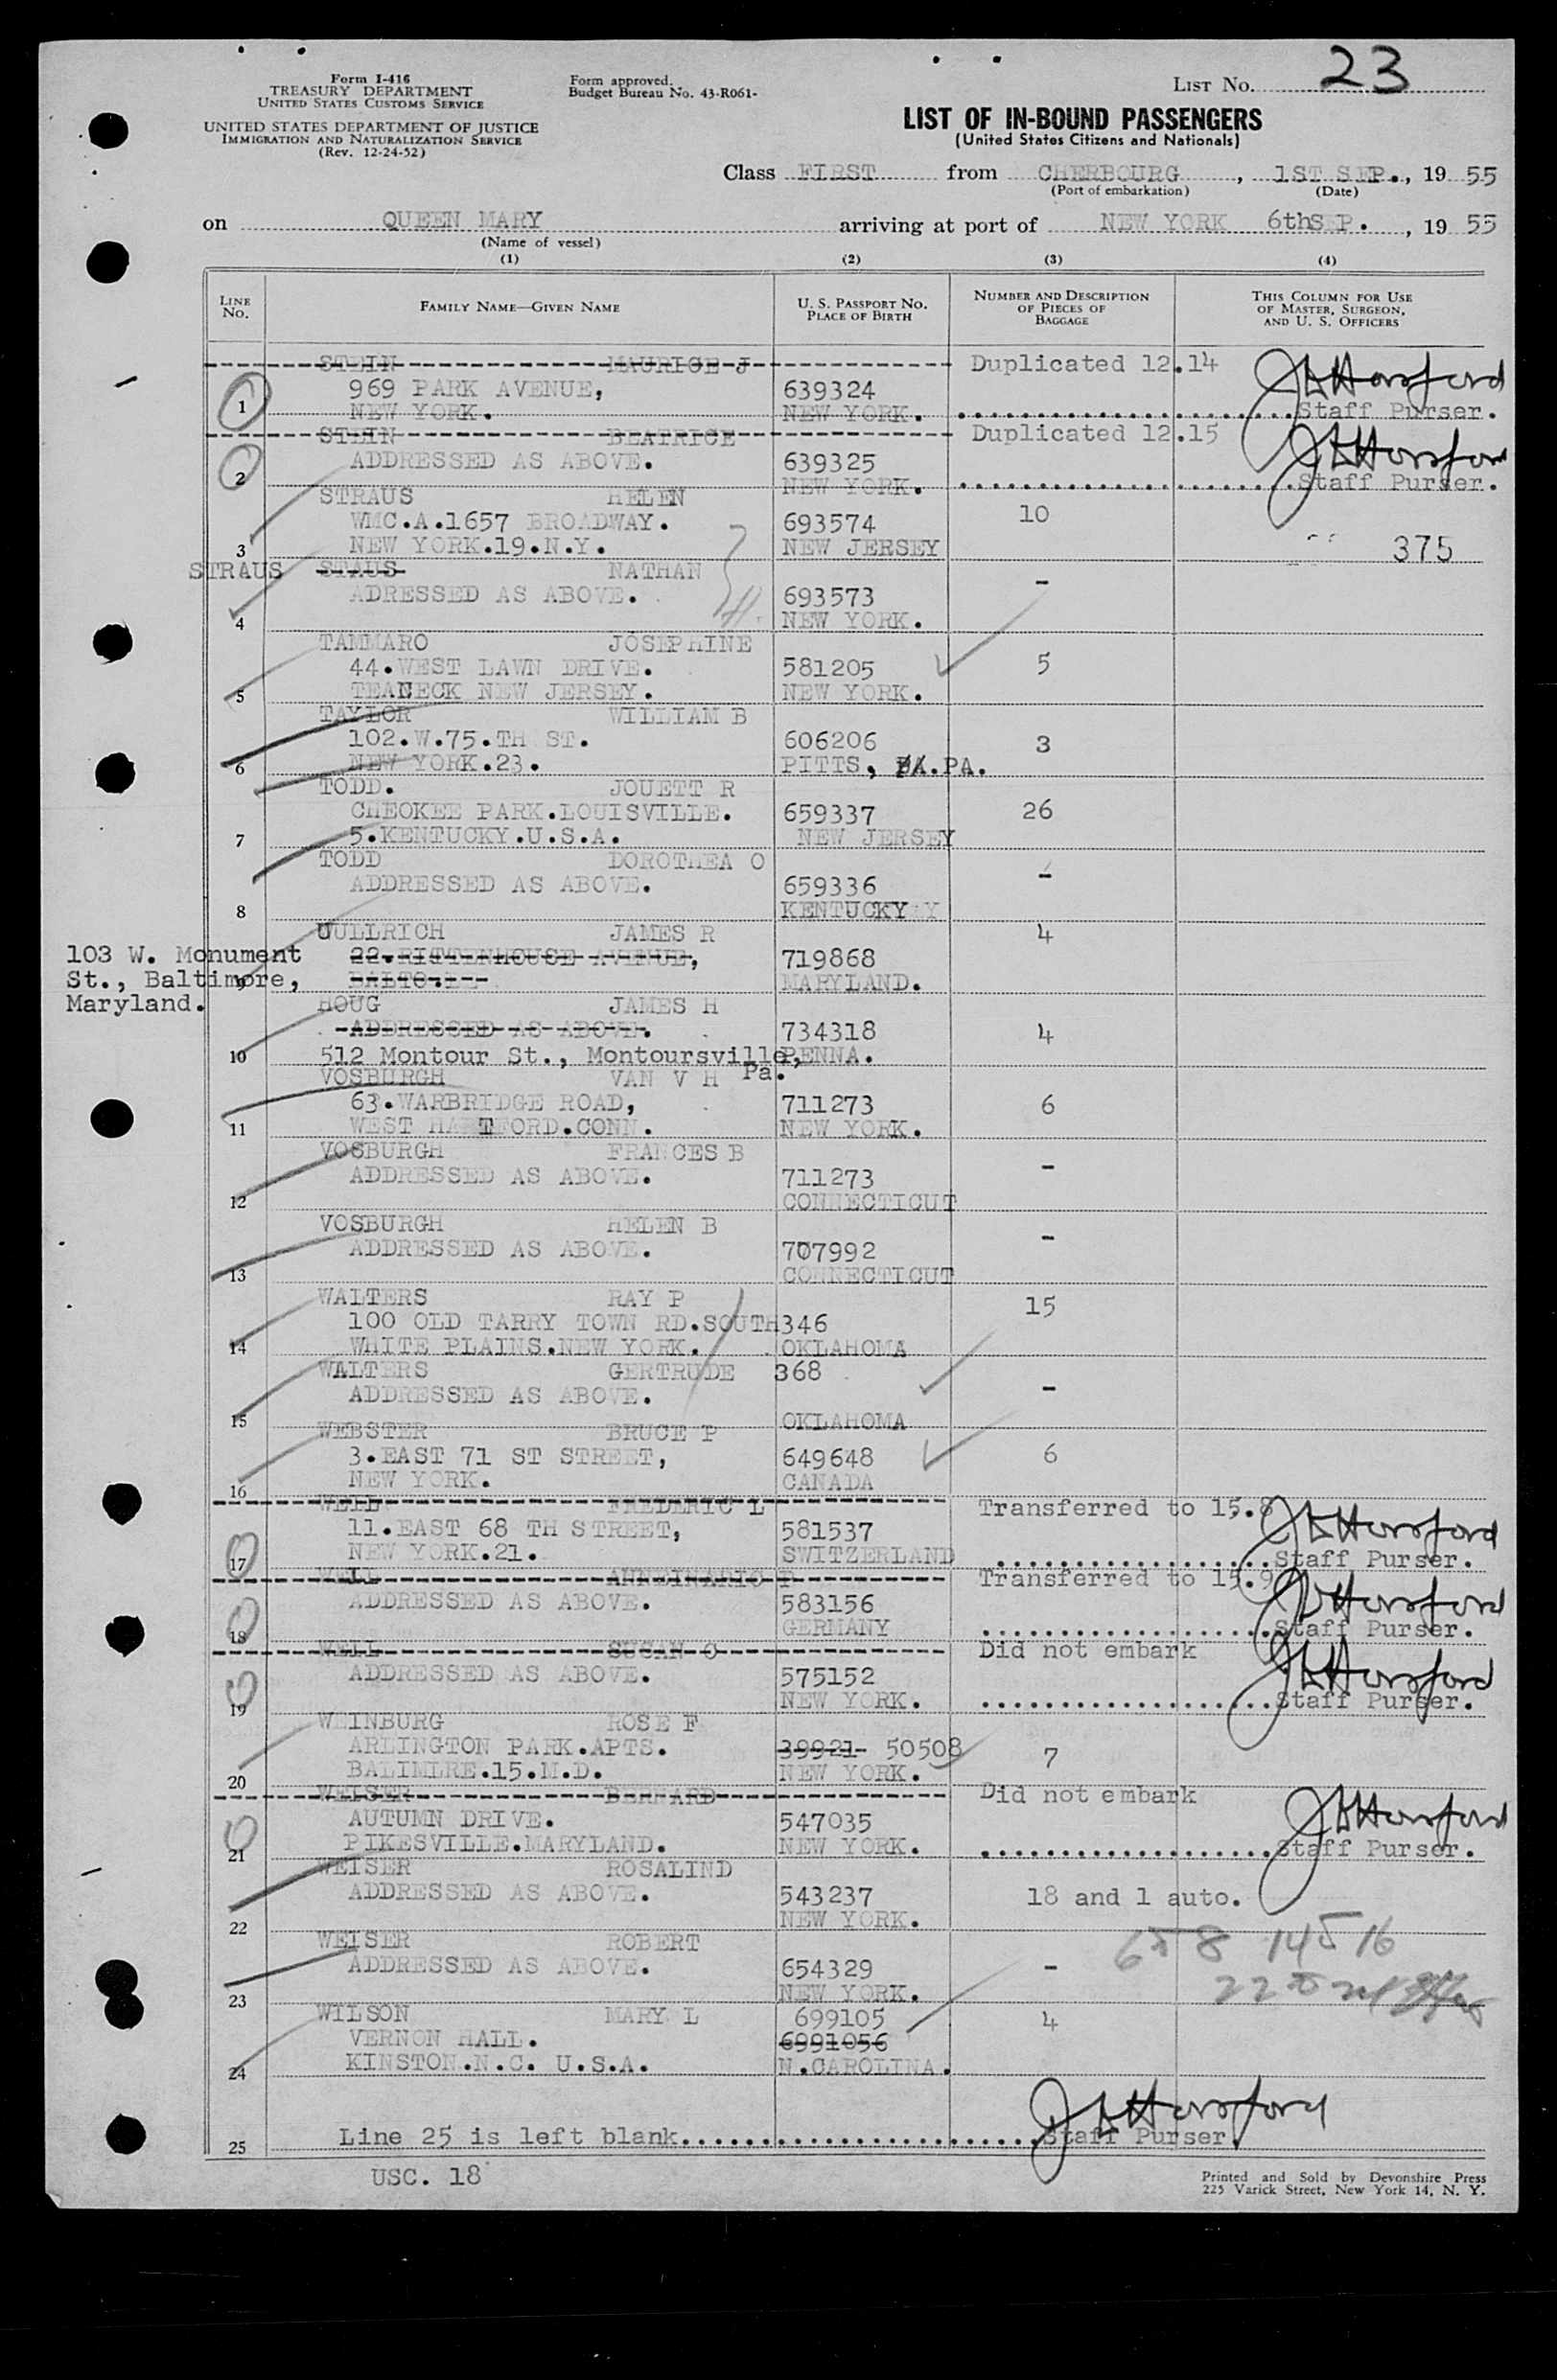 23
Form I-416
TREASURY DEPARTMENT
UNITED STATES CUSTOMS SERVICE
Form approved.
Budget Bureau No. 43-R061-
LIST NO.
UNITED STATES DEPARTMENT OF JUSTICE
IMMIGRATION AND NATURALIZATION SERVICE
(Rev. 12-24-52)
LIST OF IN-BOUND PASSENGERS
(United States Citizens and Nationals)
Class FIRST from CHERBOURG, 1ST SEP., 19 55
(Port of embarkation) (Date)
on QUEEN MARY arriving at port of NEW YORK 6thSEP., 19 55
(Name of vessel)
(1) (2) (3) (4)
LINE No. FAMILY NAME—GIVEN NAME U. S. PASSPORT NO. PLACE OF BIRTH NUMBER AND DESCRIPTION OF PIECES OF BAGGAGE THIS COLUMN FOR USE OF MASTER, SURGEON, AND U. S. OFFICERS
STEIN MAURICE J Duplicated 12.14
969 PARK AVENUE, 639324 J Horsford
1 NEW YORK. NEW YORK. Staff Purser.
STEIN BEATRICE Duplicated 12.15
ADDRESSED AS ABOVE. 639325 J Horsford
2 NEW YORK. Staff Purser.
STRAUS HELEN 10
WMC.A.1657 BROADWAY. 693574
3 NEW YORK.19.N.Y. NEW JERSEY 375
STRAUS STAUS NATHAN -
ADRESSED AS ABOVE. 693573
4 NEW YORK.
TAMMARO JOSEPHINE
44.WEST LAWN DRIVE. 581205 5
5 TEANECK NEW JERSEY. NEW YORK.
TAYLOR WILLIAM B
102.W.75.TH ST. 606206 3
6 NEW YORK.23. PITTS, PA.PA.
TODD. JOUETT R
CHEOKEE PARK.LOUISVILLE. 659337 26
7 5.KENTUCKY.U.S.A. NEW JERSEY
TODD DOROTHEA O
ADDRESSED AS ABOVE. 659336 -
8 KENTUCKY
ULLRICH JAMES R 4
103 W. Monument 22.RITTENHOUSE AVENUE, 719868
St., Baltimore, 9 BALTO. MARYLAND.
Maryland. HOUG JAMES H
ADDRESSED AS ABOVE. 734318 4
10 512 Montour St., Montoursville, Pa. PENNA.
VOSBURGH VAN V H
63.WARBRIDGE ROAD, 711273 6
11 WEST HARTFORD.CONN. NEW YORK.
VOSBURGH FRANCES B
ADDRESSED AS ABOVE. 711273 -
12 CONNECTICUT
VOSBURGH HELEN B
ADDRESSED AS ABOVE. 707992 -
13 CONNECTICUT
WALTERS RAY P 15
100 OLD TARRY TOWN RD.SOUTH 346
14 WHITE PLAINS.NEW YORK. OKLAHOMA
WALTERS GERTRUDE 368
ADDRESSED AS ABOVE. -
15 OKLAHOMA
WEBSTER BRUCE P
3.EAST 71 ST STREET, 649648 6
16 NEW YORK. CANADA
WEIL FREDERIC L Transferred to 15.8
11.EAST 68 TH STREET, 581537 J Horsford
17 NEW YORK.21. SWITZERLAND Staff Purser.
WEIL Transferred to 15.9
ADDRESSED AS ABOVE. 583156 J Horsford
18 GERMANY Staff Purser.
WEIL SUSAN O Did not embark
ADDRESSED AS ABOVE. 575152 J Horsford
19 NEW YORK. Staff Purser.
WEINBURG ROSE F
ARLINGTON PARK.APTS. 39921 50508 7
20 BALIMLRE.15.M.D. NEW YORK.
WEISER BERNARD Did not embark
AUTUMN DRIVE. 547035 J Horsford
21 PIKESVILLE.MARYLAND. NEW YORK. Staff Purser.
WEISER ROSALIND
ADDRESSED AS ABOVE. 543237 18 and 1 auto.
22 NEW YORK.
WEISER ROBERT
ADDRESSED AS ABOVE. 654329 -
23 NEW YORK.
WILSON MARY L 699105 4
VERNON HALL. 6991056
24 KINSTON.N.C. U.S.A. N.CAROLINA.
J Horsford
25 Line 25 is left blank. Staff Purser.
USC. 18
Printed and Sold by Devonshire Press
225 Varick Street, New York 14, N. Y.